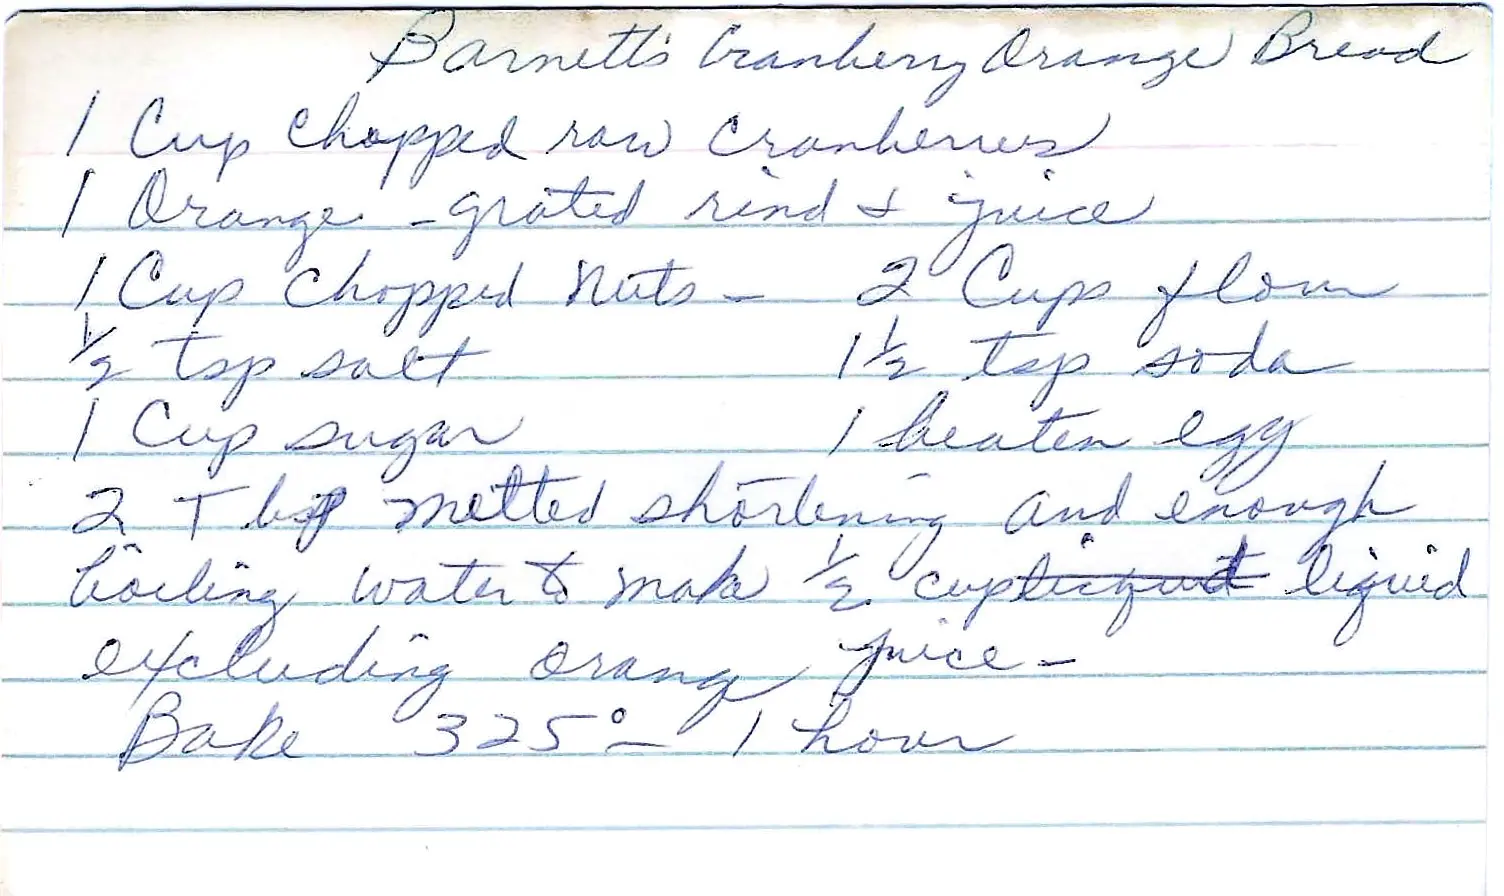 Barnett's Cranberry Orange Bread
1 Cup chopped raw cranberries
1 Orange - grated rind & juice
1 Cup chopped nuts - 2 Cups flour
1/2 tsp salt 1 1/2 tsp soda
1 Cup sugar 1 beaten egg
2 Tbsp melted shortening and enough
boiling water to make 1/2 cup liquid
excluding orange juice -
Bake 325° - 1 hour